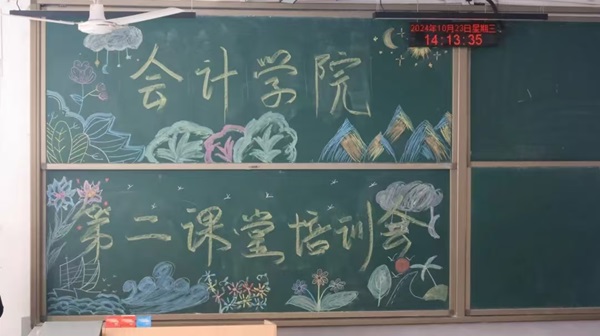 会计学院
2024年10月23日星期三
14:13:35
第二课堂培训会